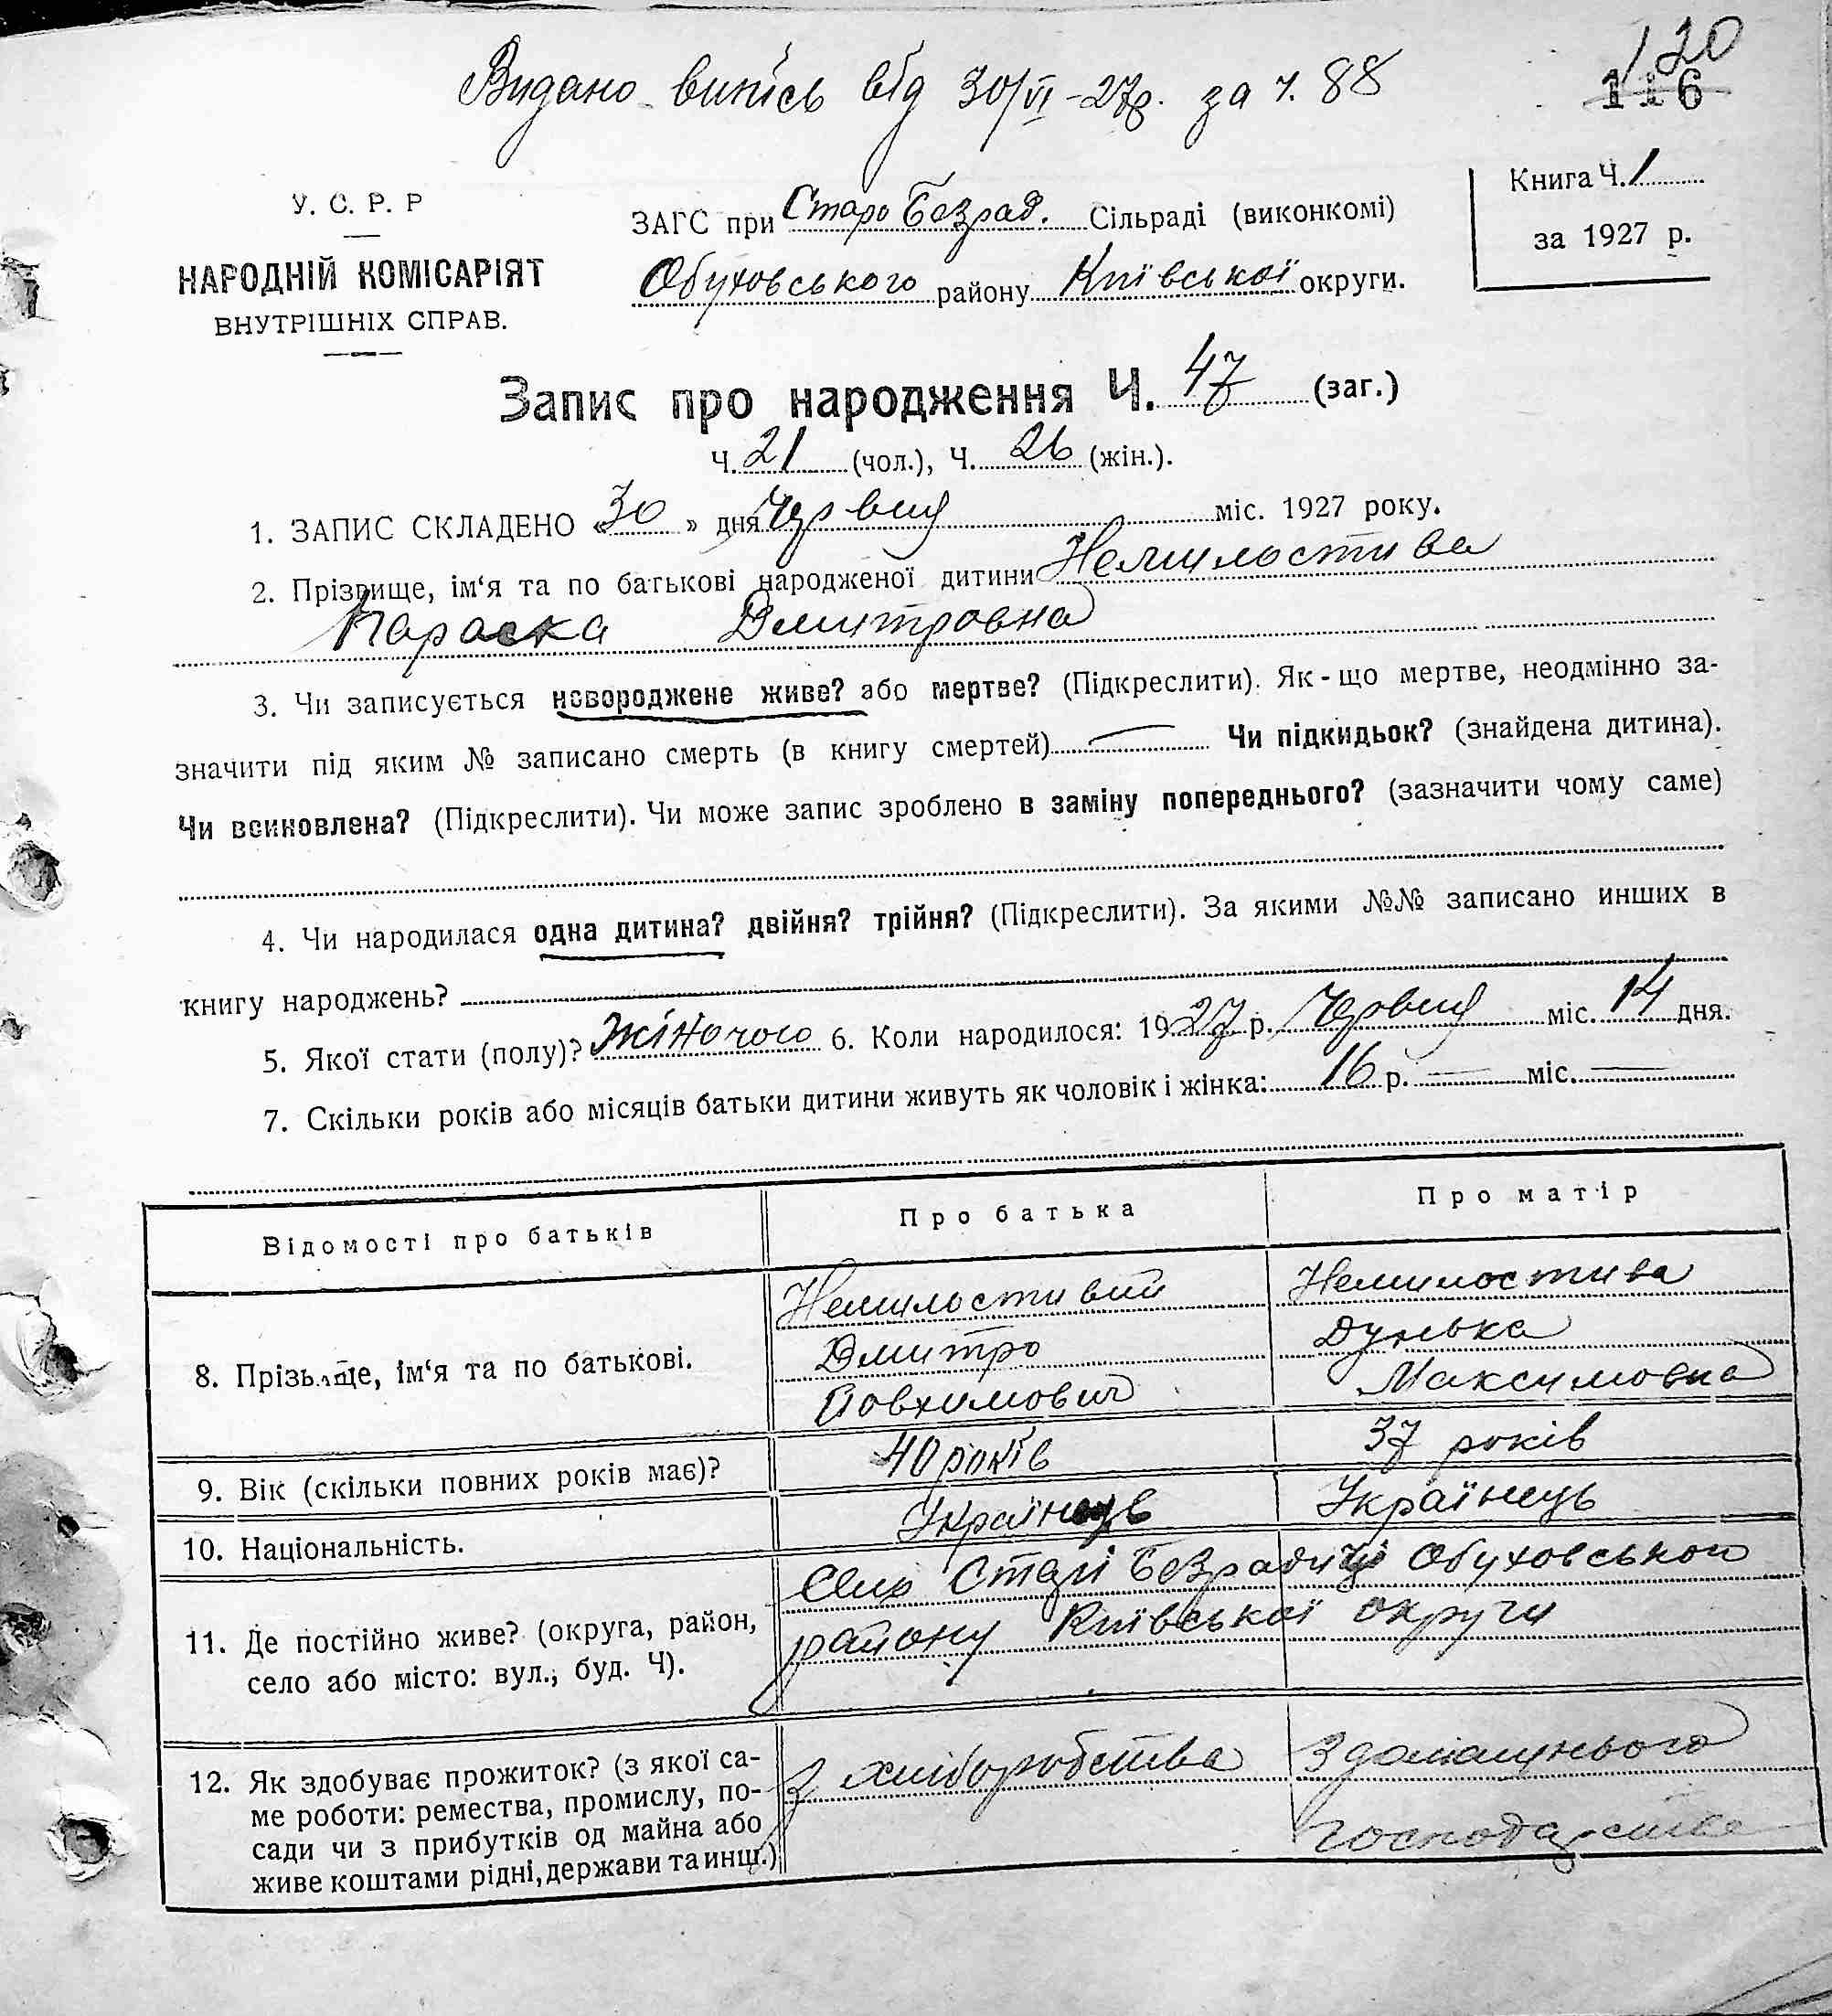 Видано випісь від 30/VI-27р. за ч. 88
120
116
У. С. Р. Р
НАРОДНІЙ КОМІСАРІЯТ
ВНУТРІШНІХ СПРАВ.
ЗАГС при Старо Безрад. Сільраді (виконкомі)
Обуховського району Київської округи.
Книга Ч. 1
за 1927 р.
Запис про народження Ч. 47 (заг.)
Ч. 21 (чол.), Ч. 26 (жін.).
1. ЗАПИС СКЛАДЕНО «30» дня Червня міс. 1927 року.
2. Прізвище, ім‘я та по батькові народженої дитини Немилостива
Параска Дмитровна
3. Чи записується новороджене живе? або мертве? (Підкреслити). Як-що мертве, неодмінно за-
значити під яким № записано смерть (в книгу смертей) Чи підкидьок? (знайдена дитина).
Чи всиновлена? (Підкреслити). Чи може запис зроблено в заміну попереднього? (зазначити чому саме)
4. Чи народилася одна дитина? двійня? трійня? (Підкреслити). За якими №№ записано инших в
книгу народжень?
5. Якої стати (полу)? Жіночого 6. Коли народилося: 1927 р. Червня міс. 14 дня.
7. Скільки років або місяців батьки дитини живуть як чоловік і жінка: 16 р. — міс. —
Відомості про батьків Про батька Про матір
8. Прізвище, ім‘я та по батькові.
Немилостивий
Дмитро
Овхимович
Немилостива
Дунька
Максимовна
9. Вік (скільки повних років має)? 40 років 37 років
10. Національність. Українець Українець
11. Де постійно живе? (округа, район,
село або місто: вул., буд. Ч).
Село Старі Безрадичі Обуховського
району Київської округи
12. Як здобуває прожиток? (з якої са-
ме роботи: ремества, промислу, по-
сади чи з прибутків од майна або
живе коштами рідні, держави та инш.)
з хліборобства
З домашнього
господарства